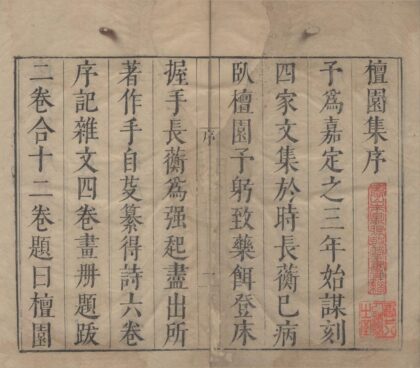 檀園集序
予爲嘉定之三年始謀刻
四家文集於時長蘅已病
臥檀園予躬致藥餌登床
序
一
握手長蘅爲强起盡出所
著作手自芟纂得詩六卷
序記雜文四卷畫册題跋
二卷合十二卷題曰檀園